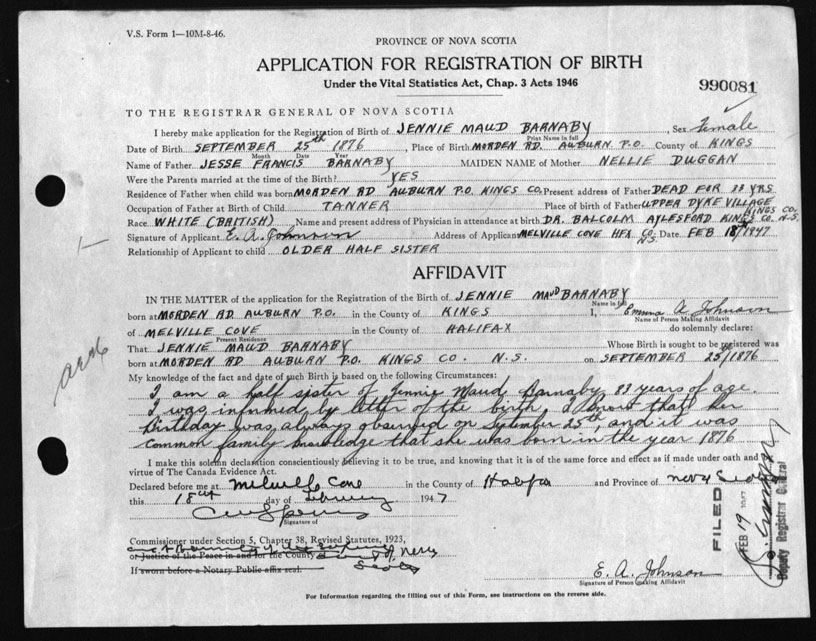 V.S. Form 1—10M-8-46.
PROVINCE OF NOVA SCOTIA
APPLICATION FOR REGISTRATION OF BIRTH
Under the Vital Statistics Act, Chap. 3 Acts 1946
990081
TO THE REGISTRAR GENERAL OF NOVA SCOTIA
I hereby make application for the Registration of Birth of JENNIE MAUD BARNABY, Sex Female
Print Name in full
Date of Birth SEPTEMBER 25th 1876, Place of Birth MORDEN RD. AUBURN P.O. County of KINGS
Month Date Year
Name of Father JESSE FRANCIS BARNABY MAIDEN NAME of Mother NELLIE DUGGAN
Were the Parents married at the time of the Birth? YES
Residence of Father when child was born MORDEN RD AUBURN P.O. KINGS CO. Present address of Father DEAD FOR 38 YRS
Occupation of Father at Birth of Child TANNER Place of birth of Father UPPER DYKE VILLAGE KINGS CO.
Race WHITE (BRITISH) Name and present address of Physician in attendance at birth DR. BALCOLM AYLESFORD KINGS CO. N.S.
Signature of Applicant E. A. Johnson Address of Applicant MELVILLE COVE HFX CO. N.S. Date FEB 18th/1947
Relationship of Applicant to child OLDER HALF SISTER
AFFIDAVIT
IN THE MATTER of the application for the Registration of the Birth of JENNIE MAUD BARNABY
Name in full
born at MORDEN RD. AUBURN P.O. in the County of KINGS I, Emma A Johnson
Name of Person Making Affidavit
of MELVILLE COVE in the County of HALIFAX do solemnly declare:
Present Residence
That JENNIE MAUD BARNABY Whose Birth is sought to be registered was
born at MORDEN RD AUBURN P.O. KINGS CO. N.S. on SEPTEMBER 25th/1876
My knowledge of the fact and date of such Birth is based on the following Circumstances:
I am a half sister of Jennie Maud Barnaby 83 years of age.
I was informed by letter of the birth, I know that her
Birthday was always observed on September 25th, and it was
common family knowledge that she was born in the year 1876
I make this solemn declaration conscientiously believing it to be true, and knowing that it is of the same force and effect as if made under oath and by
virtue of The Canada Evidence Act.
Declared before me at Melville Cove in the County of Halifax and Province of Nova Scotia
this 18th day of February 1947
Signature of
Commissioner under Section 5, Chapter 38, Revised Statutes, 1923,
or Justice of the Peace in and for the County of Nova
Scotia
If sworn before a Notary Public affix seal.
E. A. Johnson
Signature of Person making Affidavit
For Information regarding the filling out of this Form, see instructions on the reverse side.
FILED
FEB 19 1947
Deputy Registrar General